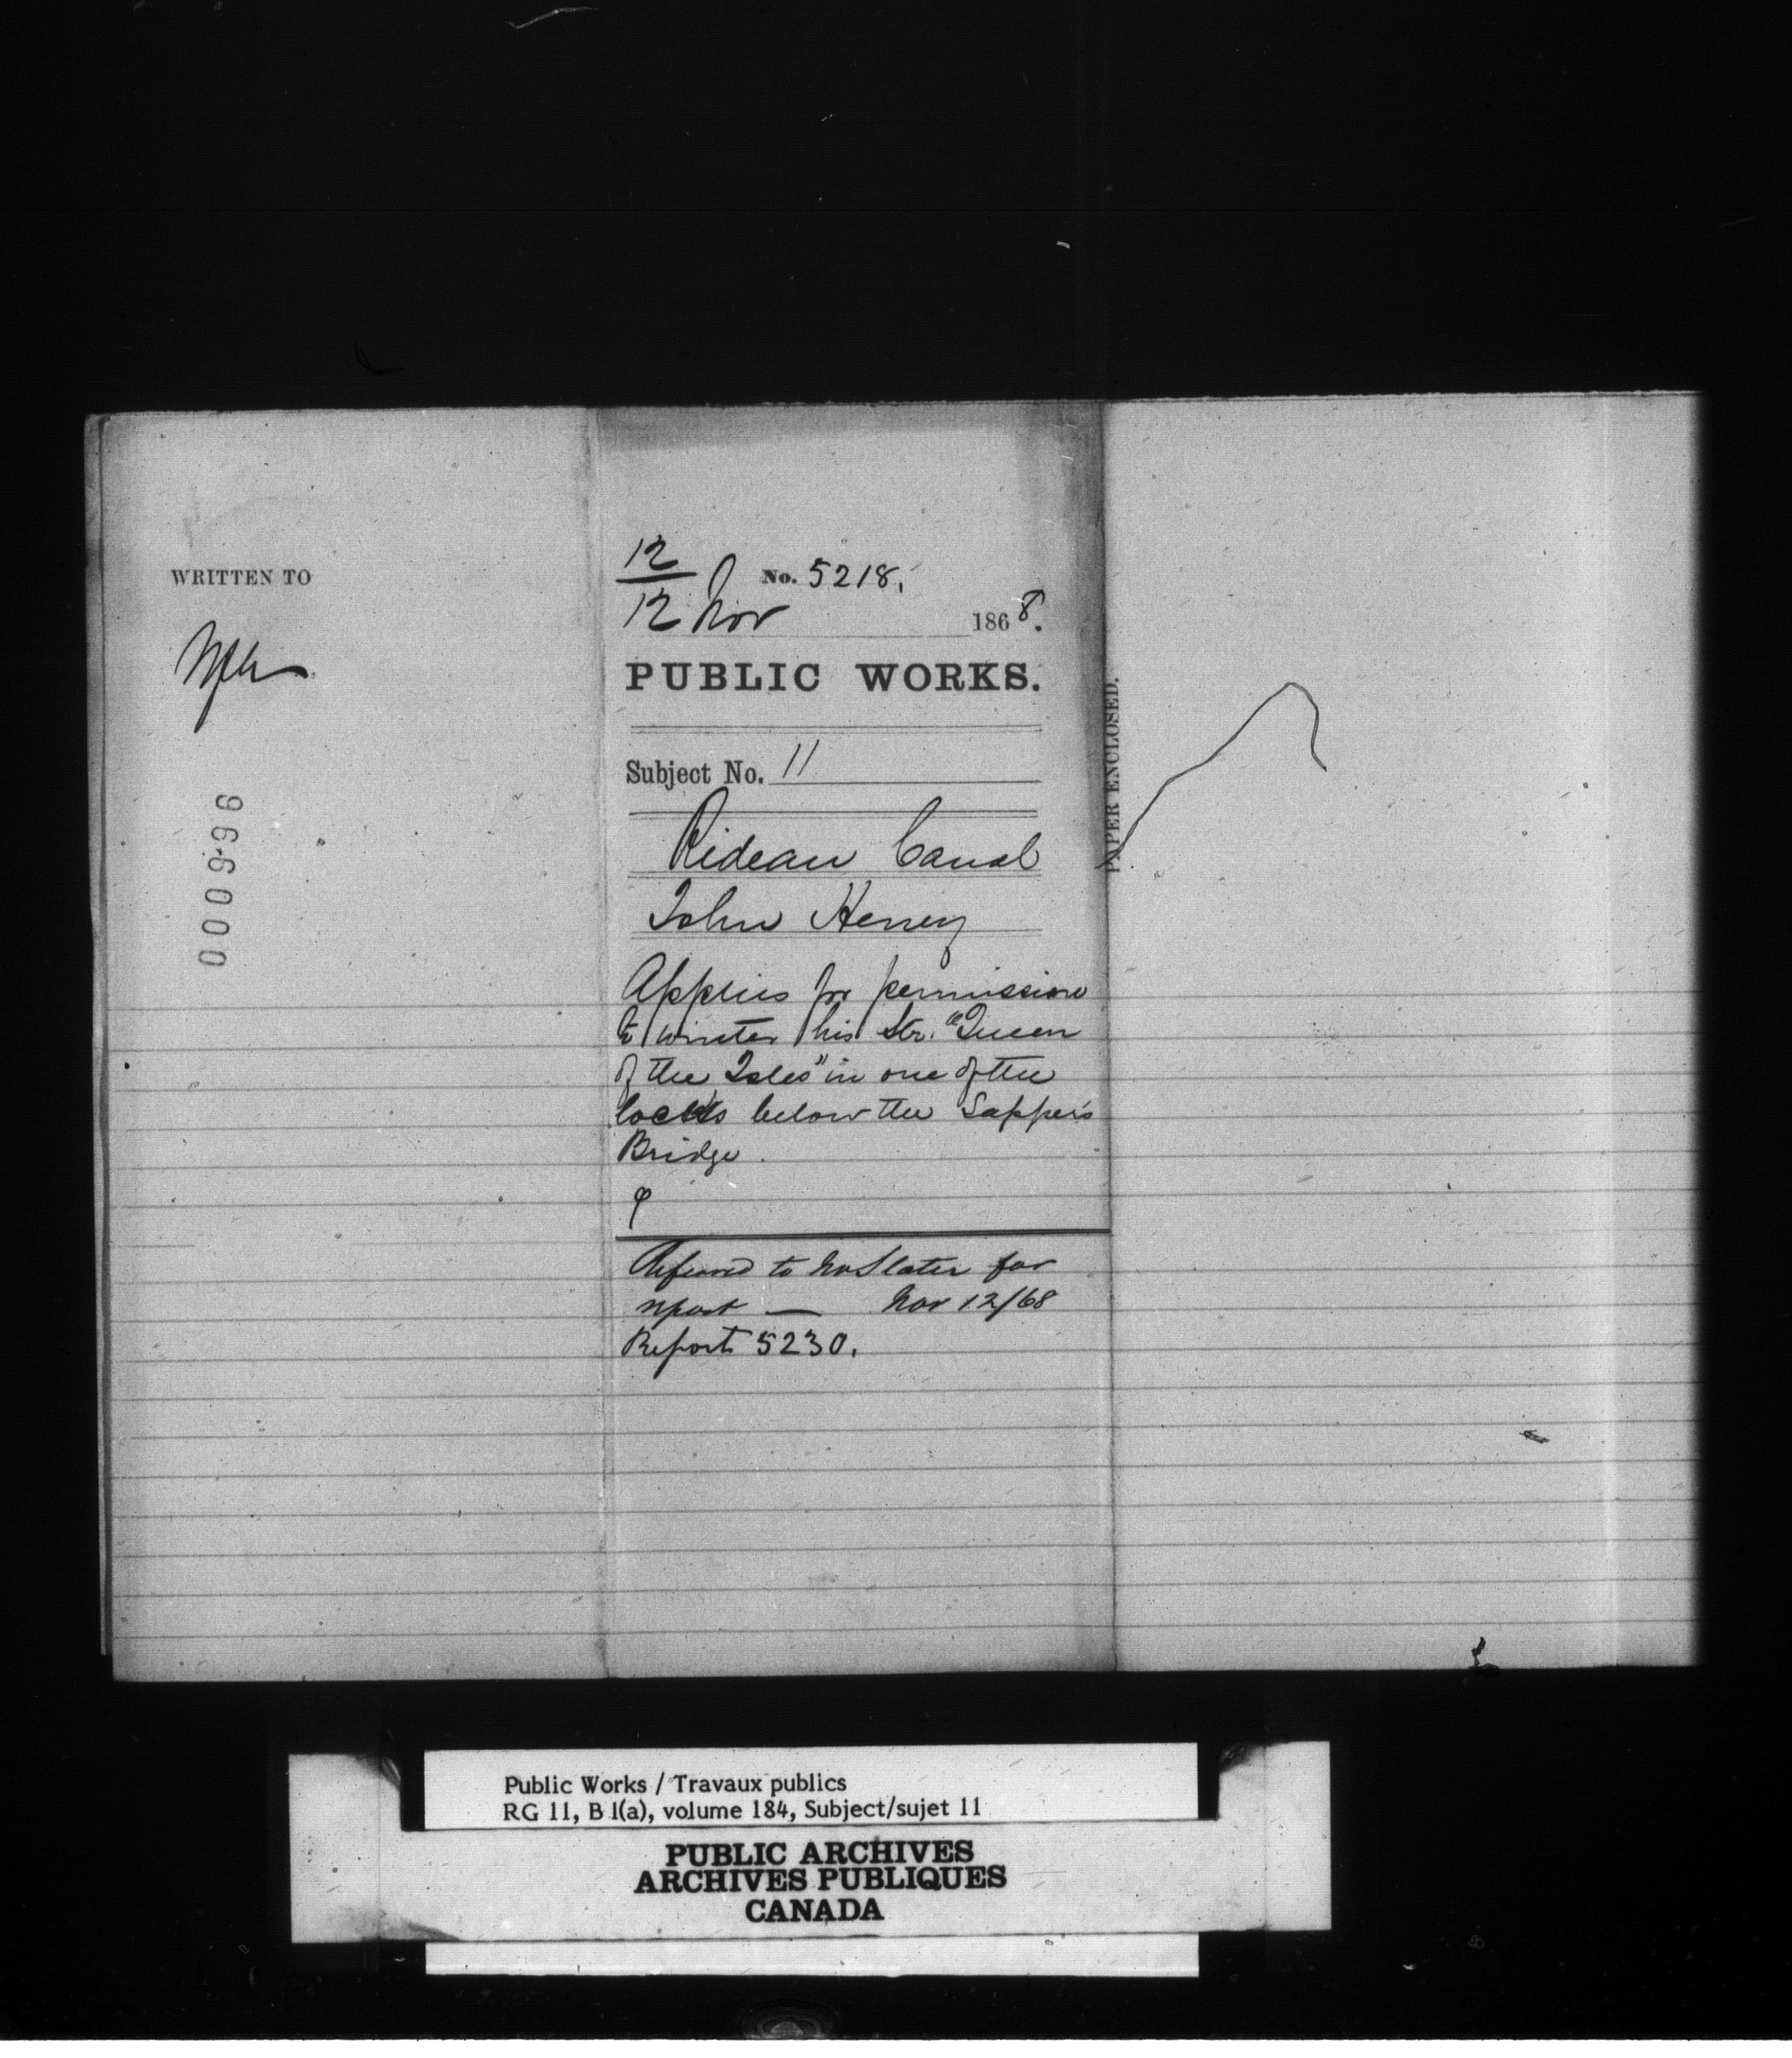 WRITTEN TO
000996
12
12 Nov
No. 5218.
1868.
PUBLIC WORKS.
Subject No. 11
Rideau Canal
John Heney
Applies for permission
to winter his Str. "Queen
of the Isles" in one of the
locks below the Sappers
Bridge.
Referred to Mr Slater for
report — Nov 12/68
Report 5230.
PAPER ENCLOSED.
Public Works / Travaux publics
RG 11, B 1(a), volume 184, Subject/sujet 11
PUBLIC ARCHIVES
ARCHIVES PUBLIQUES
CANADA